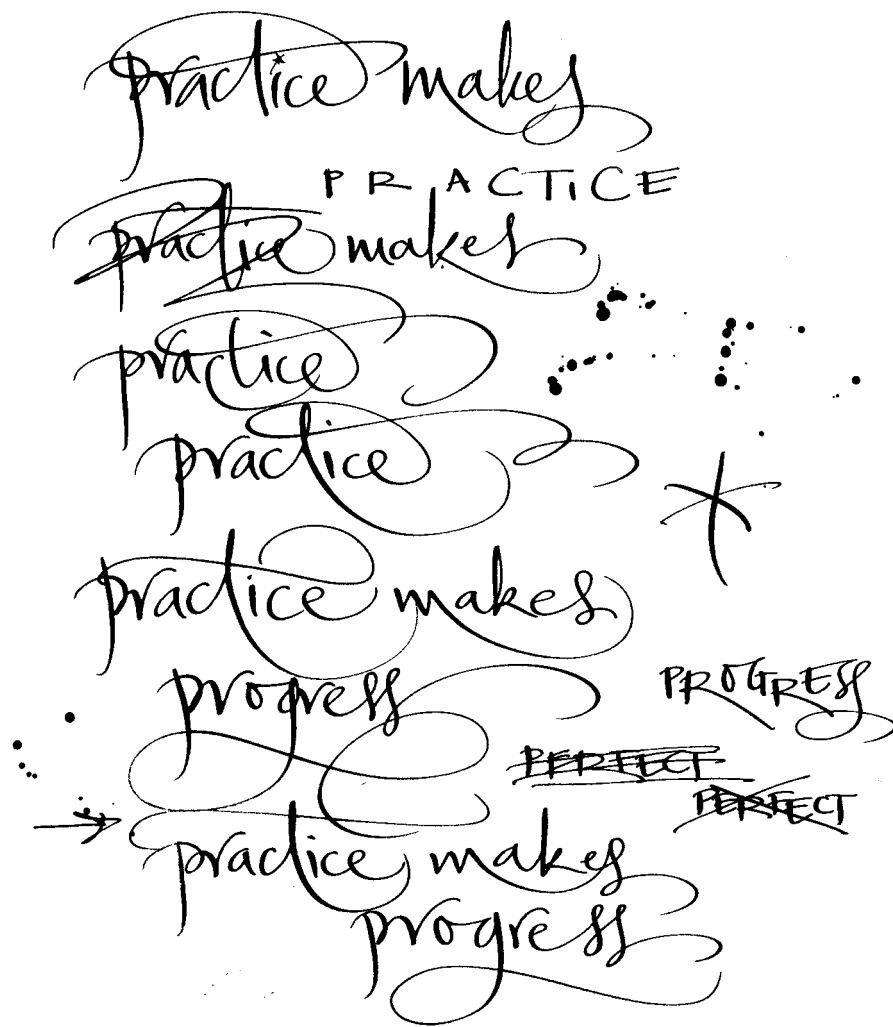 practice makes
PRACTICE
practice makes
practice
practice
practice makes
progress
PROGRESS
PERFECT
PERFECT
practice makes
progress